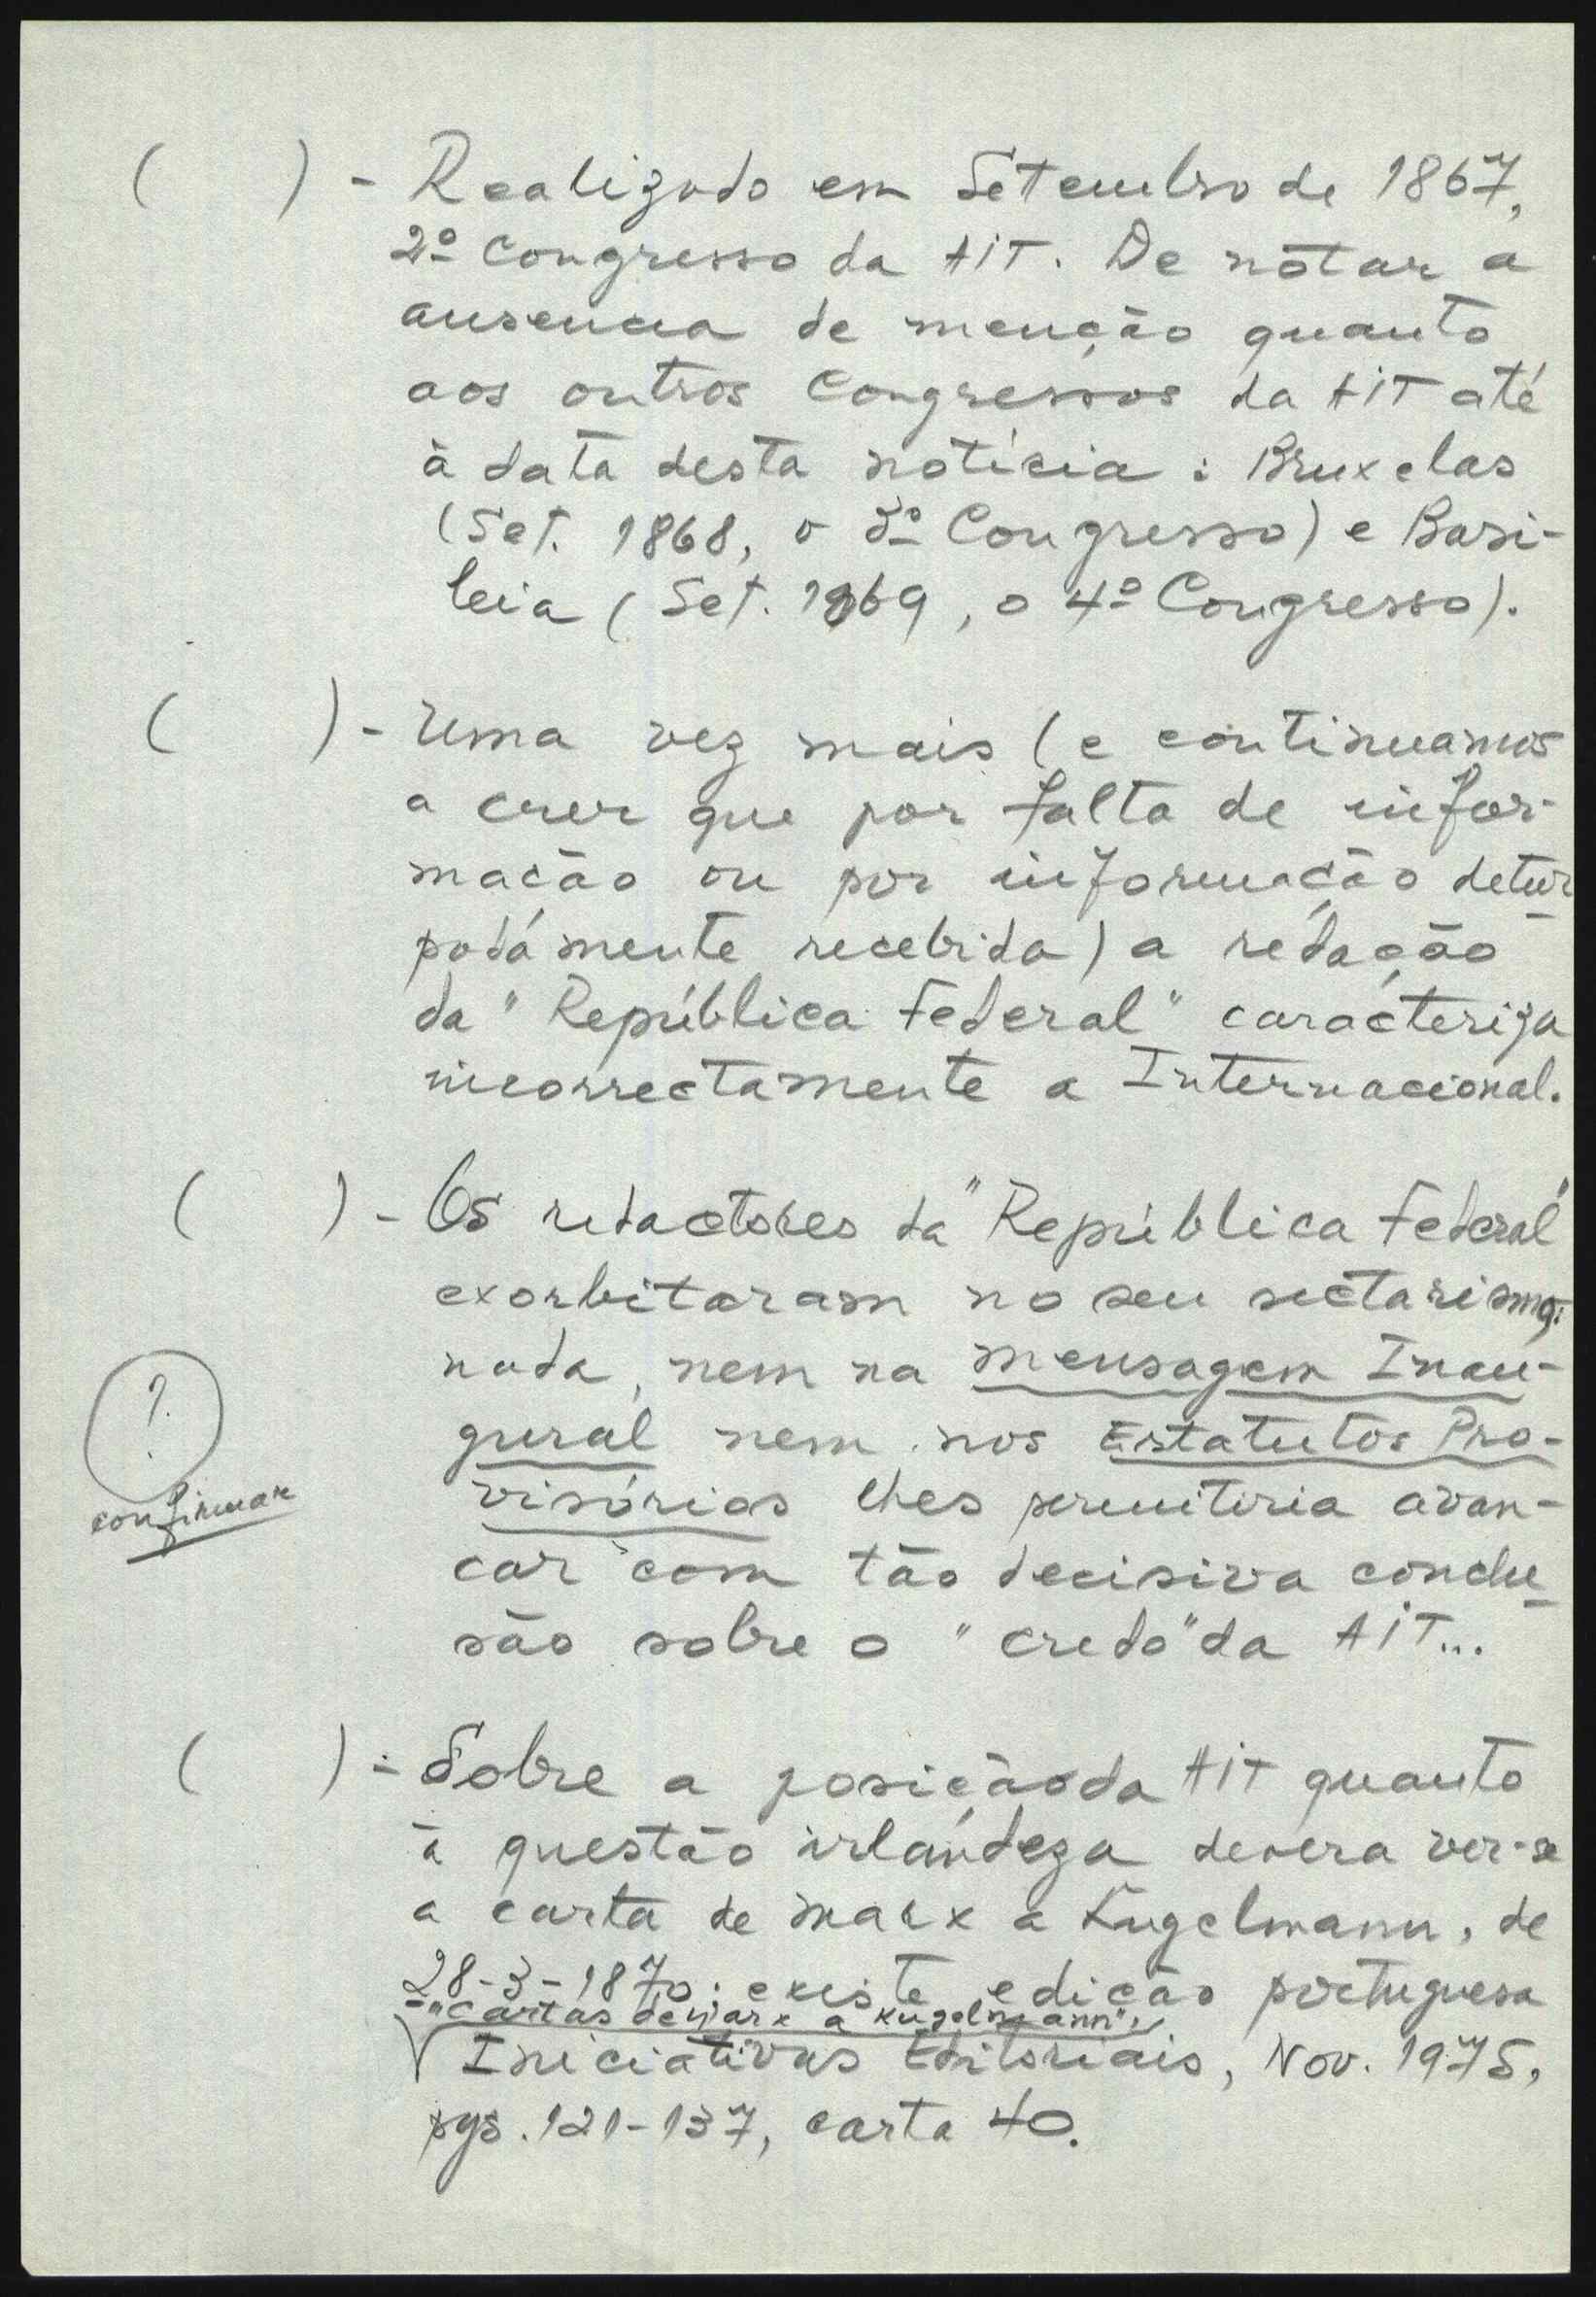 ( ) - Realizado em Setembro de 1867,
2º Congresso da AIT. De notar a
ausencia de menção quanto
aos outros Congressos da AIT até
à data desta notícia : Bruxelas
(Set. 1868, o 3º Congresso) e Basi-
leia (Set. 1869, o 4º Congresso).
( ) - Uma vez mais (e continuamos
a crer que por falta de infor-
mação ou por informação detur
padamente recebida) a redação
da "República Federal" caracteriza
incorrectamente a Internacional.
( ) - Os redactores da "República Federal"
exorbitaram no seu sectarismo:
nada, nem na Mensagem Inau-
gural nem nos Estatutos Pro-
visórios lhes permitiria avan-
çar com tão decisiva conclu
são sobre o "credo" da AIT...
?
confirmar
( ) - Sobre a posição da AIT quanto
à questão irlandeza devera ver-se
a carta de Marx a Kugelmann, de
28-3-1870; existe edição portuguesa
- "Cartas de Marx a Kugelmann",
Iniciativas Editoriais, Nov. 1975,
pgs. 121-137, carta 40.